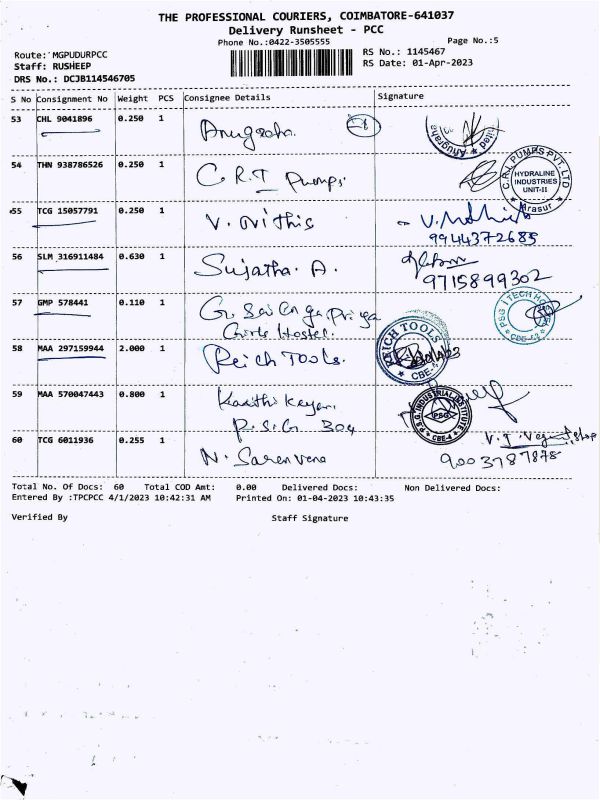 THE PROFESSIONAL COURIERS, COIMBATORE-641037
Delivery Runsheet - PCC
Phone No.:0422-3505555 Page No.:5
Route: MGPUDURPCC RS No.: 1145467
Staff: RUSHEEP RS Date: 01-Apr-2023
DRS No.: DCJB114546705
S No Consignment No Weight PCS Consignee Details Signature
53 CHL 9041896 0.250 1 Anugraha
54 THN 938786526 0.250 1 C.R.I Pumps C.R.I. PUMPS PVT. LTD HYDRALINE INDUSTRIES UNIT-II Arasur
55 TCG 15057791 0.250 1 V.
99443 72685
56 SLM 316911484 0.630 1 Sujatha. A.
9715899302
57 GMP 578441 0.110 1 G. Sai Priya
Girls Hostel. PSG I TECH
58 MAA 297159944 2.000 1 Reich Tools. REICH TOOLS CBE-4
59 MAA 570047443 0.800 1 P.S.G. INDUSTRIAL INSTITUTE PSG CBE-4
P.S.G 304
60 TCG 6011936 0.255 1 N.
9003787878
Total No. Of Docs: 60 Total COD Amt: 0.00 Delivered Docs: Non Delivered Docs:
Entered By :TPCPCC 4/1/2023 10:42:31 AM Printed On: 01-04-2023 10:43:35
Verified By Staff Signature